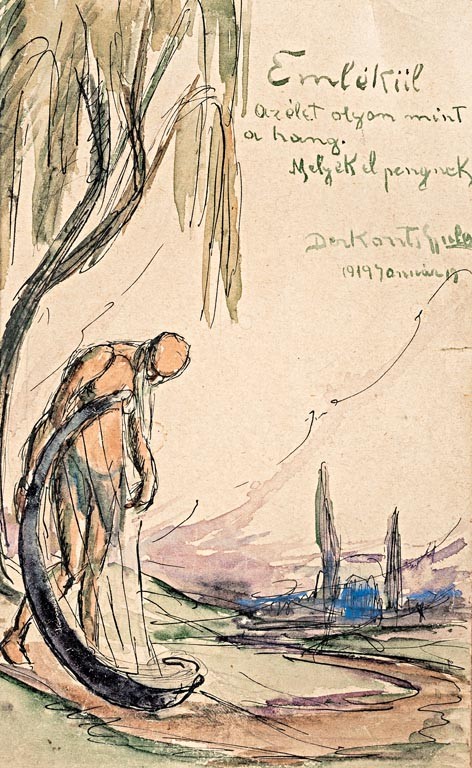 Emlékül
Az élet olyan mint
a hang.
Melyek el pengnek
Derkovits Gyula
1919 Januárius